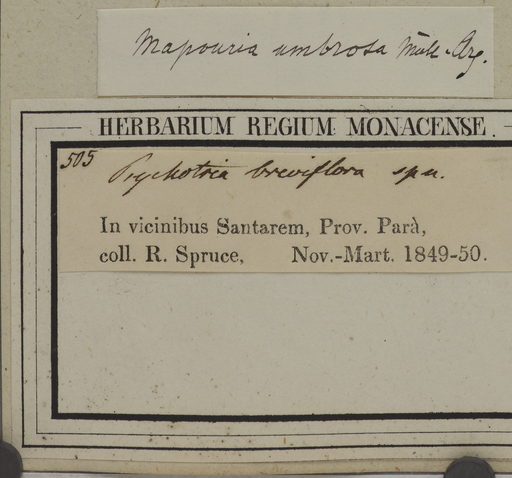 Mapouria umbrosa Müll-Arg.
HERBARIUM REGIUM MONACENSE.
505
Psychotria breviflora sp n.
In vicinibus Santarem, Prov. Parà,
coll. R. Spruce, Nov.-Mart. 1849-50.